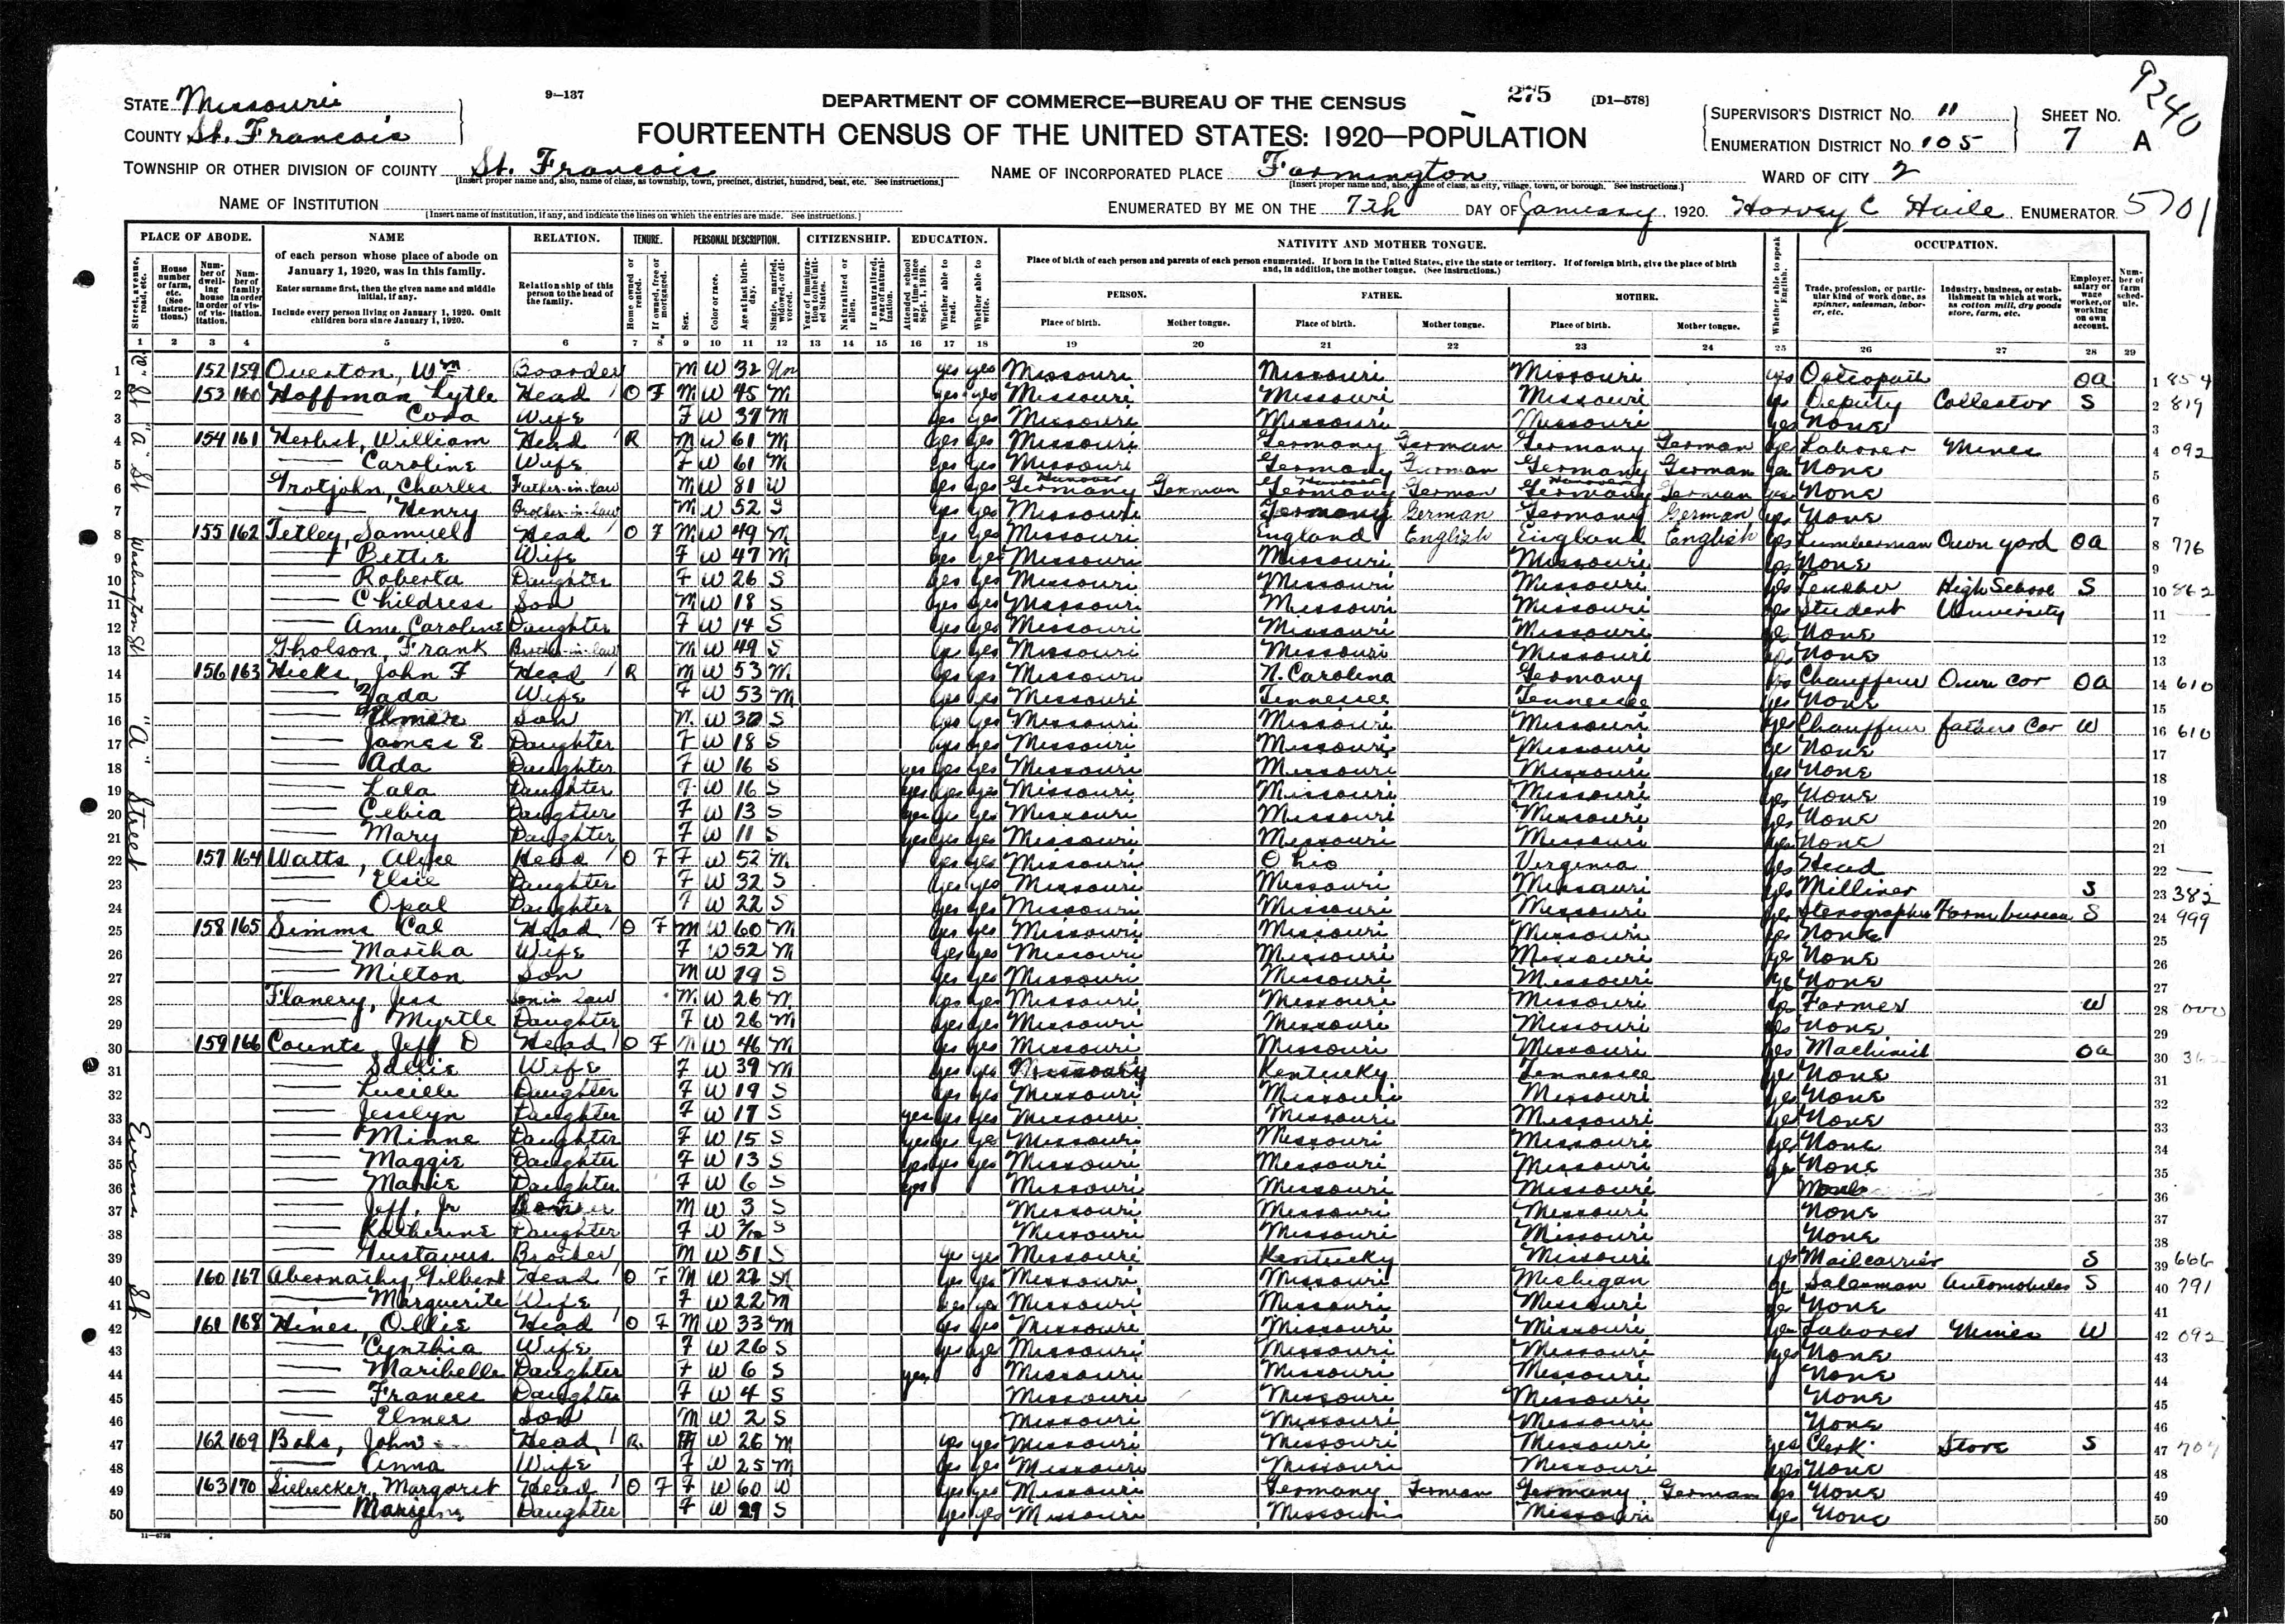 9—137
DEPARTMENT OF COMMERCE—BUREAU OF THE CENSUS
275 [D1—578]
9240
STATE Missouri
COUNTY St. Francois
FOURTEENTH CENSUS OF THE UNITED STATES: 1920—POPULATION
SUPERVISOR'S DISTRICT No. 11
ENUMERATION DISTRICT No. 105
SHEET No. 7 A
TOWNSHIP OR OTHER DIVISION OF COUNTY St. Francois
[Insert proper name and, also, name of class, as township, town, precinct, district, hundred, beat, etc. See instructions.]
NAME OF INCORPORATED PLACE Farmington
[Insert proper name and, also, name of class, as city, village, town, or borough. See instructions.]
WARD OF CITY 2
NAME OF INSTITUTION
[Insert name of institution, if any, and indicate the lines on which the entries are made. See instructions.]
ENUMERATED BY ME ON THE 7th DAY OF January, 1920. Harvey C Haile ENUMERATOR. 5701
PLACE OF ABODE. NAME RELATION. TENURE. PERSONAL DESCRIPTION. CITIZENSHIP. EDUCATION. NATIVITY AND MOTHER TONGUE. OCCUPATION.
1 2 3 4 5 6 7 8 9 10 11 12 13 14 15 16 17 18 19 20 21 22 23 24 25 26 27 28 29
1 152 159 Overton, Wm Boarder M W 32 Un yes yes Missouri Missouri Missouri yes Osteopath OA 1 854
2 153 160 Hoffman Lytle Head O F M W 45 M yes yes Missouri Missouri Missouri yes Deputy Collector S 2 819
3 — Cora Wife F W 37 M yes yes Missouri Missouri Missouri yes None 3
4 154 161 Herbst, William Head R M W 61 M yes yes Missouri Germany German Germany German yes Laborer Mines 4 092
5 — Caroline Wife F W 61 M yes yes Missouri Germany German Germany German yes None 5
6 Grotjohn, Charles Father-in-law M W 81 W yes yes Germany Hanover German Germany Hanover German Germany Hanover German yes None 6
7 — Henry Brother-in-law M W 52 S yes yes Missouri Germany German Germany German yes None 7
8 155 162 Tetley, Samuel Head O F M W 49 M yes yes Missouri England English England English yes Lumberman Own yard OA 8 776
9 — Bettie Wife F W 47 M yes yes Missouri Missouri Missouri yes None 9
10 — Roberta Daughter F W 26 S yes yes Missouri Missouri Missouri yes Teacher High School S 10 862
11 — Childress Son M W 18 S yes yes Missouri Missouri Missouri yes Student University 11
12 — Ame Caroline Daughter F W 14 S yes yes Missouri Missouri Missouri ye None 12
13 Gholson, Frank Brother-in-law M W 49 S yes yes Missouri Missouri Missouri yes None 13
14 156 163 Hicks, John F Head R M W 53 M yes yes Missouri N. Carolina Germany yes Chauffeur Own car OA 14 610
15 — Zada Wife F W 53 M yes yes Missouri Tennessee Tennessee yes None 15
16 — Elmer Son M W 30 S yes yes Missouri Missouri Missouri yes Chauffeur fathers Car W 16 610
17 — James E Daughter F W 18 S yes yes Missouri Missouri Missouri ye None 17
18 — Ada Daughter F W 16 S yes yes yes Missouri Missouri Missouri yes None 18
19 — Lala Daughter F W 16 S yes yes yes Missouri Missouri Missouri yes None 19
20 — Celia Daughter F W 13 S yes yes yes Missouri Missouri Missouri yes None 20
21 — Mary Daughter F W 11 S yes yes yes Missouri Missouri Missouri yes None 21
22 157 164 Watts, Alyce Head O F F W 52 M yes yes Missouri Ohio Virginia yes Head 22
23 — Elsie Daughter F W 32 S yes yes Missouri Missouri Missouri yes Milliner S 23 382
24 — Opal Daughter F W 22 S yes yes Missouri Missouri Missouri yes Stenographer Farm bureau S 24 999
25 158 165 Simms Cal Head O F M W 60 M yes yes Missouri Missouri Missouri yes None 25
26 — Martha Wife F W 52 M yes yes Missouri Missouri Missouri ye None 26
27 — Milton Son M W 19 S yes yes Missouri Missouri Missouri ye None 27
28 Flanery, Jess Son in law M W 26 M yes yes Missouri Missouri Missouri yes Farmer W 28 000
29 — Myrtle Daughter F W 26 M yes yes Missouri Missouri Missouri yes None 29
30 159 166 Counts, Jeff D Head O F M W 46 M yes yes Missouri Missouri Missouri yes Machinist OA 30
31 — Sallie Wife F W 39 M yes yes Missouri Kentucky Tennessee ye None 31
32 — Lucille Daughter F W 19 S yes yes Missouri Missouri Missouri yes None 32
33 — Jesslyn Daughter F W 17 S yes yes yes Missouri Missouri Missouri yes None 33
34 — Minne Daughter F W 15 S yes yes ye Missouri Missouri Missouri yes None 34
35 — Maggie Daughter F W 13 S yes yes yes Missouri Missouri Missouri yes None 35
36 — Marie Daughter F W 6 S yes Missouri Missouri Missouri None 36
37 — Jeff, Jr M W 3 S Missouri Missouri Missouri None 37
38 — Katherine Daughter F W S Missouri Missouri Missouri None 38
39 — Gustavus Brother M W 51 S ye yes Missouri Kentucky Missouri yes Mail carrier S 39 666
40 160 167 Abernathy, Gilbert Head O F M W 27 M yes yes Missouri Missouri Michigan ye Salesman Automobiles S 40 791
41 — Marguerite Wife F W 22 M yes yes Missouri Missouri Missouri ye None 41
42 161 168 Hines, Ollie Head O F M W 33 M yes yes Missouri Missouri Missouri yes Laborer Mines W 42 092
43 — Cynthia Wife F W 26 S yes ye Missouri Missouri Missouri yes None 43
44 — Maribelle Daughter F W 6 S yes Missouri Missouri Missouri None 44
45 — Frances Daughter F W 4 S Missouri Missouri Missouri None 45
46 — Elmer Son M W 2 S Missouri Missouri Missouri None 46
47 162 169 John Head R M W 26 M yes yes Missouri Missouri Missouri yes Clerk Store S 47 707
48 — Anna Wife F W 25 M yes yes Missouri Missouri Missouri yes None 48
49 163 170 Siebecker, Margaret Head O F F W 60 W yes yes Missouri Germany German Germany German yes None 49
50 — Daughter F W 29 S yes yes Missouri Missouri Missouri yes None 50
"A" St
Washington St
"A" Street
Evans St
11—6738